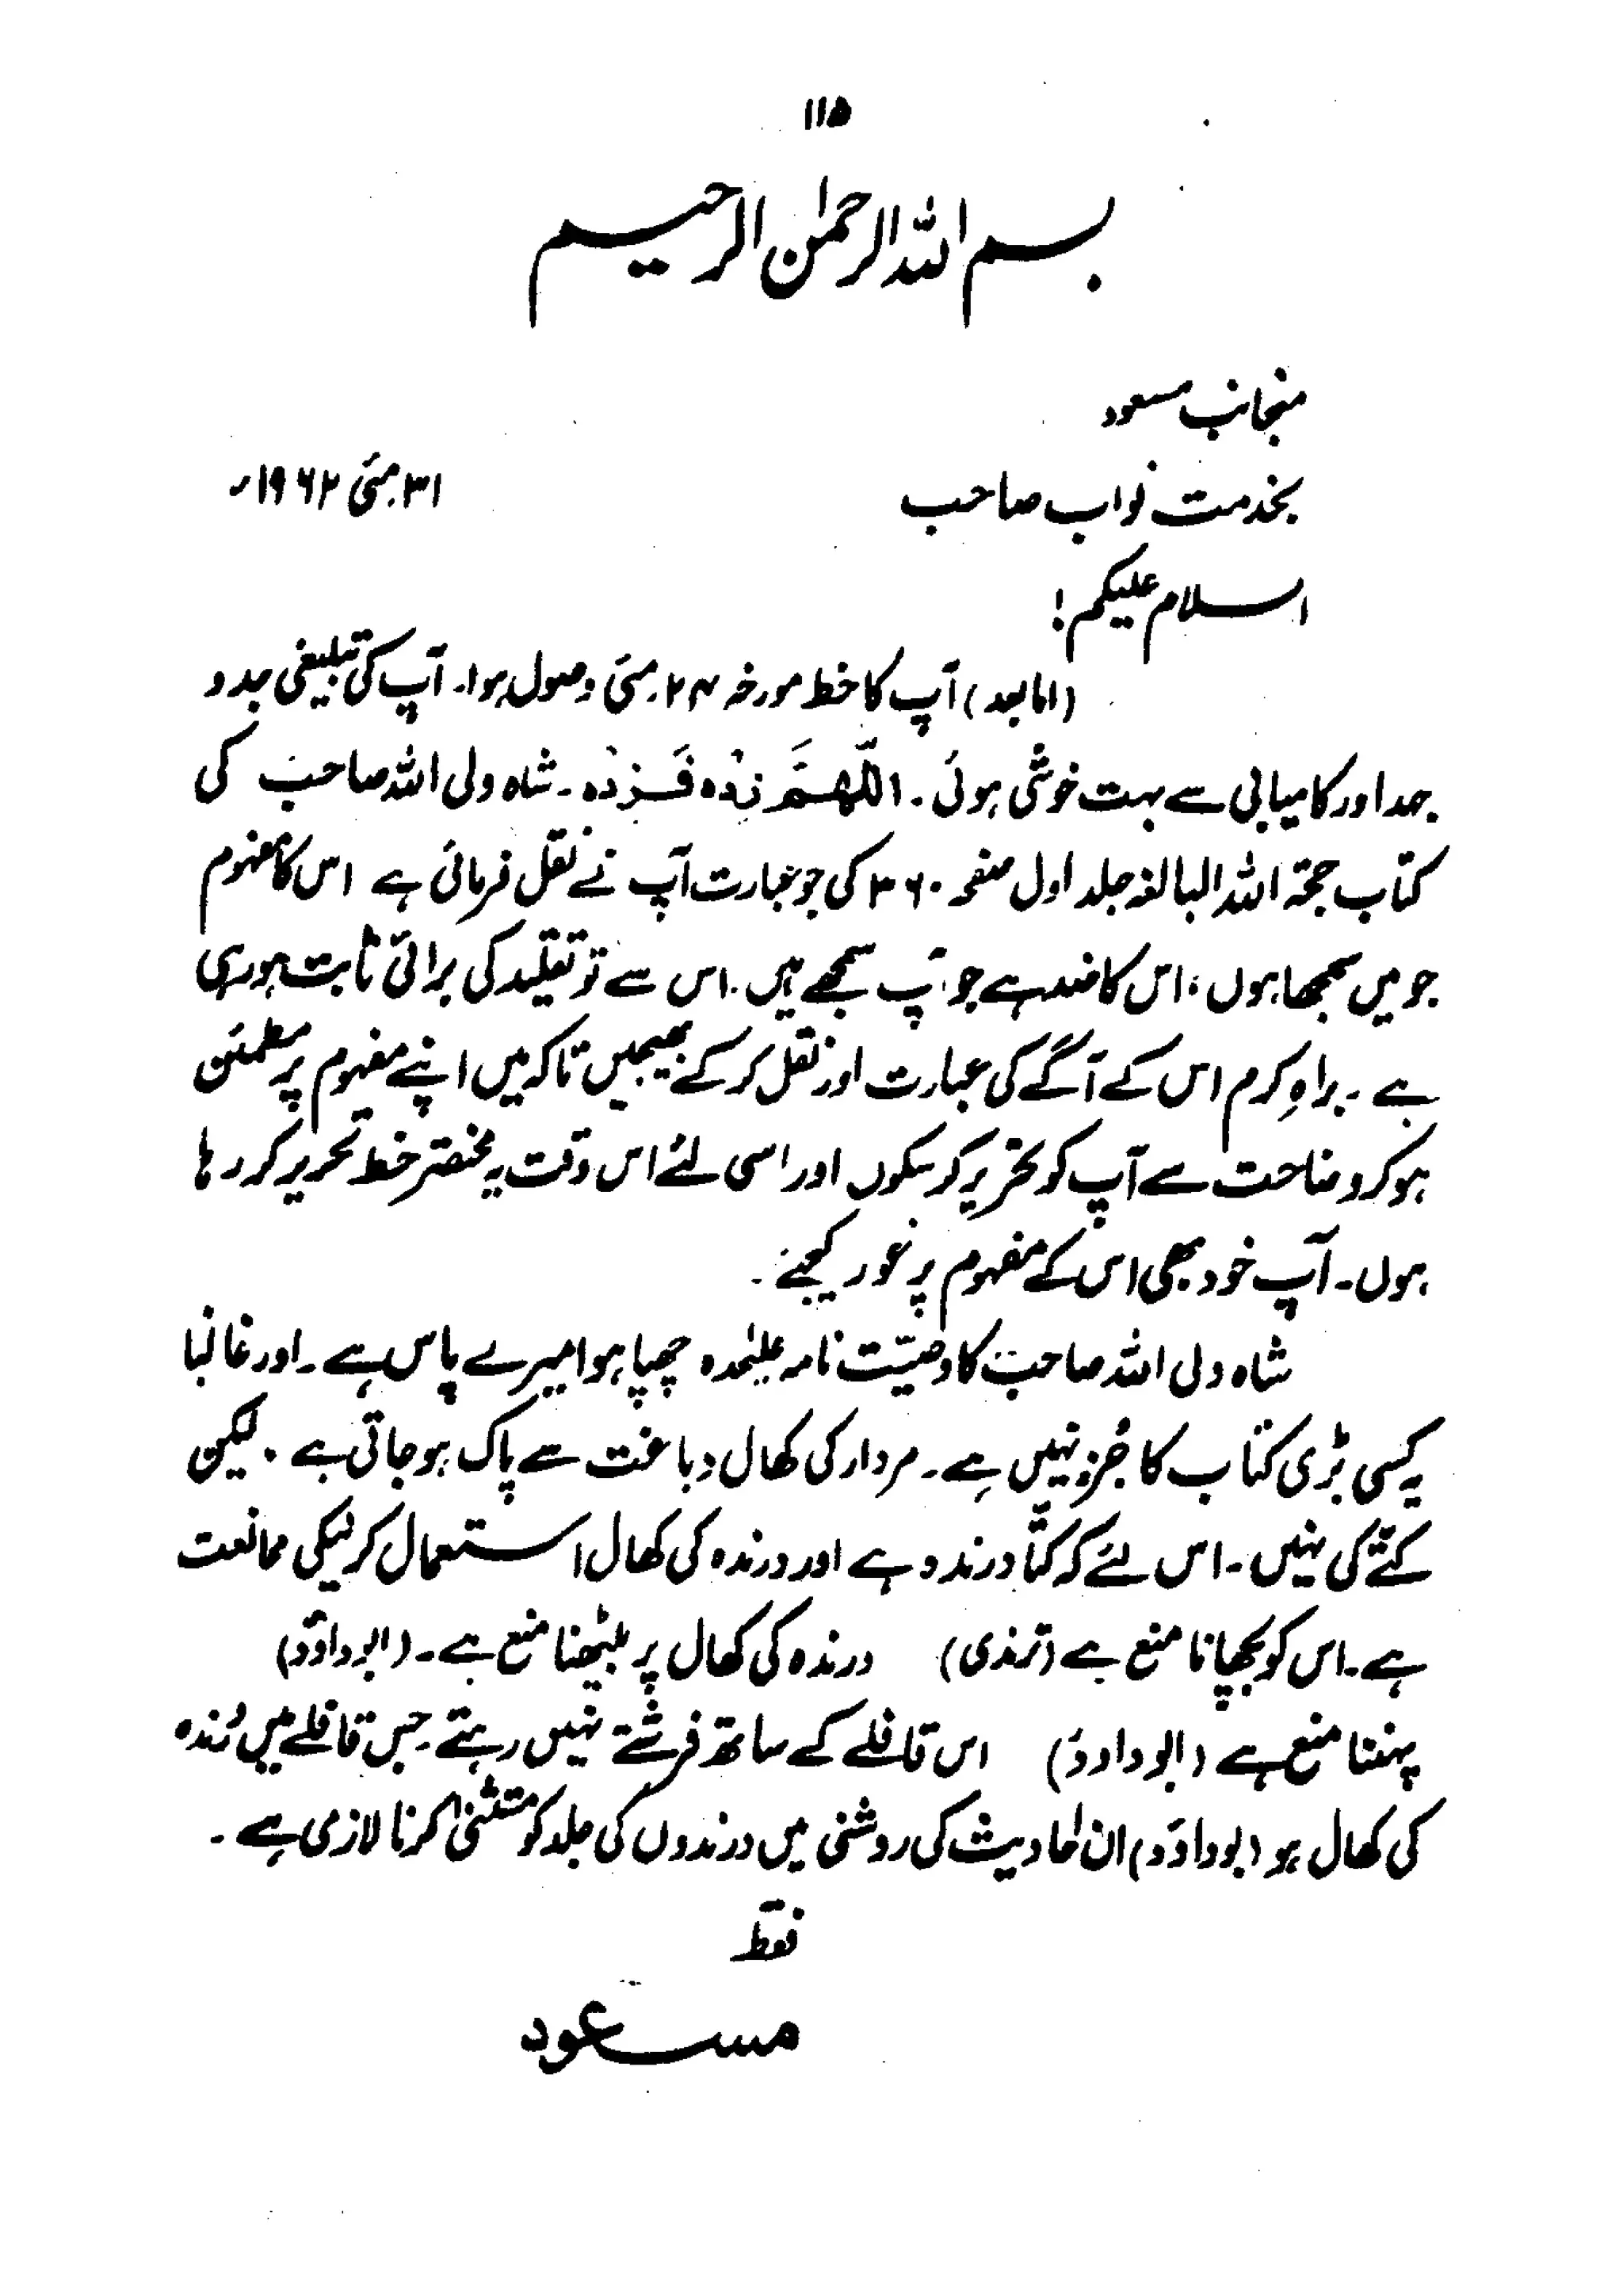 ۱۱۵
بسم اللہ الرحمٰن الرحیم
منجانب مسعود
بخدمت نواب صاحب
۳۱؍مئی ۱۹۶۲ء
السلام علیکم!
(امابعد) آپ کا خط مورخہ ۲۴؍مئی وصول ہوا۔ آپ کی تبلیغی جدو
جہد اور کامیابی سے بہت خوشی ہوئی۔ اللّٰھُمَّ زِدْہ فَزِدْہ۔ شاہ ولی اللہ صاحبؒ کی
کتاب حجۃ اللہ البالغہ جلد اول صفحہ ۳۶۰ کی جو عبارت آپ نے نقل فرمائی ہے اس کا مفہوم
جو میں سمجھا ہوں، اس کا ضد ہے جو آپ سمجھے ہیں۔ اس سے تو تقلید کی برائی ثابت ہورہی
ہے۔ براہِ کرم اس کے آگے کی عبارت اور نقل کرکے بھیجیں تاکہ میں اپنے مفہوم پر مطمئن
ہوکر وضاحت سے آپ کو تحریر کرسکوں اور اسی لئے اس وقت یہ مختصر خط تحریر کر رہا
ہوں۔ آپ خود بھی اس کے مفہوم پر غور کیجئے۔
شاہ ولی اللہ صاحبؒ کا وصیّت نامہ علیٰحدہ چھپا ہوا میرے پاس ہے۔ اور غالباً
یہ کسی بڑی کتاب کا جُزو نہیں ہے۔ مردار کی کھال دباغت سے پاک ہوجاتی ہے۔ لیکن
کتّے کی نہیں۔ اس لئے کہ کتّا درندہ ہے اور درندہ کی کھال استعمال کرنیکی ممانعت
ہے۔ اس کو بچھانا منع ہے (ترمذی) درندہ کی کھال پر بیٹھنا منع ہے۔ (ابوداؤد)
پہننا منع ہے (ابوداؤد) اس قافلے کے ساتھ فرشتے نہیں رہتے جس قافلے میں درندہ
کی کھال ہو (ابوداؤد) ان احادیث کی روشنی میں درندوں کی جلد کو مستثنیٰ کرنا لازمی ہے۔
فقط
مسعود